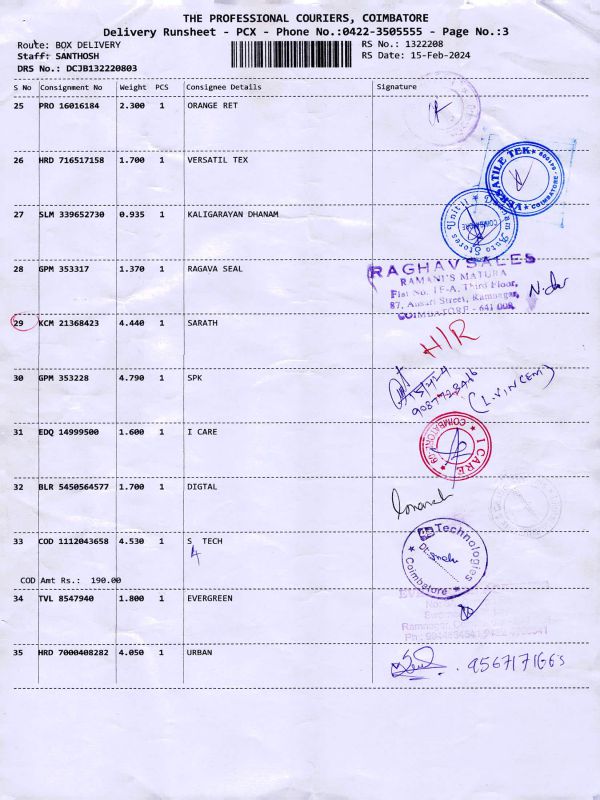 THE PROFESSIONAL COURIERS, COIMBATORE
Delivery Runsheet - PCX - Phone No.:0422-3505555 - Page No.:3
Route: BOX DELIVERY RS No.: 1322208
Staff: SANTHOSH RS Date: 15-Feb-2024
DRS No.: DCJB132220803
S No Consignment No Weight PCS Consignee Details Signature
25 PRO 16016184 2.300 1 ORANGE RET
26 HRD 716517158 1.700 1 VERSATIL TEX
VERSATILE TEK COIMBATORE
27 SLM 339652730 0.935 1 KALIGARAYAN DHANAM
Auto Stores Unit II COIMBATORE
28 GPM 353317 1.370 1 RAGAVA SEAL
RAGHAV SALES
RAMANI'S MATURA
Flat No. 1F-A, Third Floor,
87, Ansari Street, Ramnagar,
COIMBATORE - 641 009
29 KCM 21368423 4.440 1 SARATH
H/R
30 GPM 353228 4.790 1 SPK
9087728416
31 EDQ 14999500 1.600 1 I CARE
I CARE COIMBATORE
32 BLR 5450564577 1.700 1 DIGTAL
33 COD 1112043658 4.530 1 S TECH
4
4S Technologies
Coimbatore
COD Amt Rs.: 190.00
34 TVL 8547940 1.800 1 EVERGREEN
Ramnagar
35 HRD 7000408282 4.050 1 URBAN